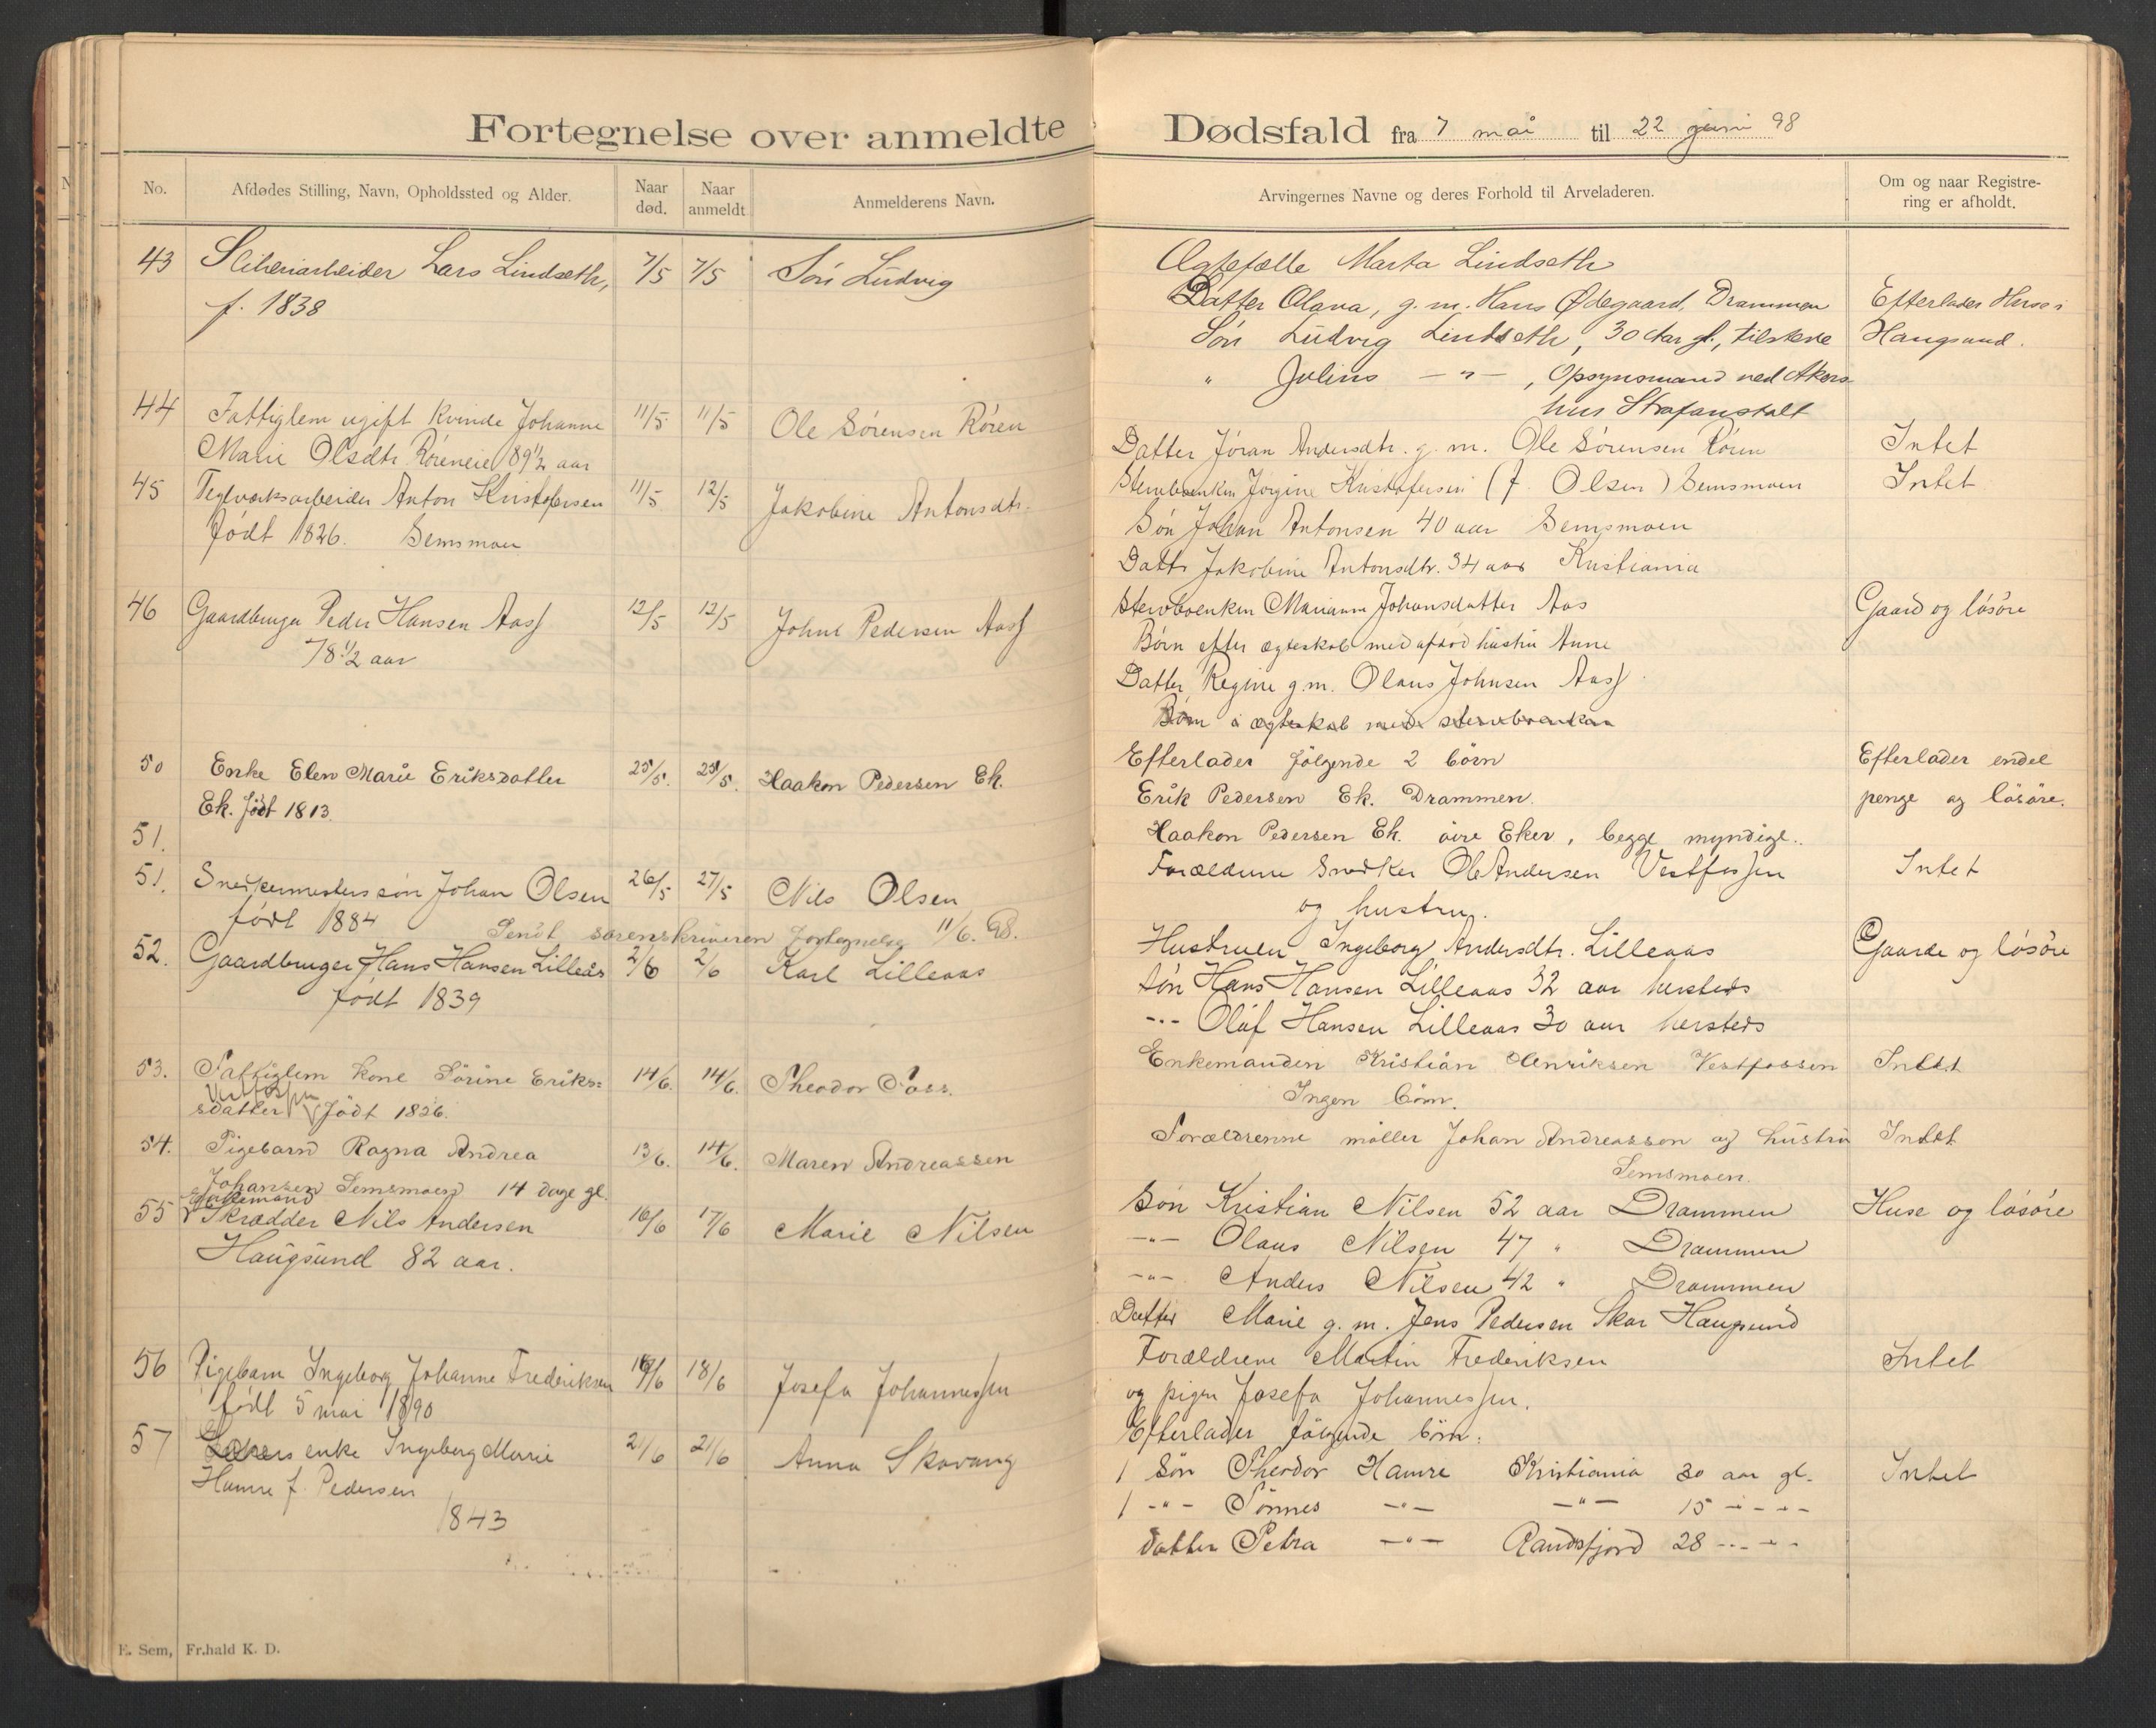 Fortegnelse over anmeldte Dødsfald fra 7 mai til 22 juni 98
No.
Afdødes Stilling, Navn, Opholdssted og Alder.
Naar død.
Naar anmeldt
Anmelderens Navn.
Arvingernes Navne og deres Forhold til Arveladeren.
Om og naar Registrering er afholdt.
43 Sliberiarbeider Lars Lindseth, 7/5 7/5 Søn Ludvig
f. 1838
Ægtefælle Marta Lindseth
Datter Olava, g. m. Hans Ødegaard, Drammen Efterlader Huse i
Søn Ludvig Lindseth, 30 Aar gl., tilstede Haugsund.
" Julius — " — , Opsynsmand ved Akers-
hus Strafanstalt
44 Fattiglem ugift Kvinde Johanne 11/5 11/5 Ole Sørensen Røren
Marie Olsdtr. Røreneie 89 1/2 aar
Datter Jøran Andersdtr. g. m. Ole Sørensen Røren Intet
45 Teglværksarbeider Anton Kristofersen 11/5 12/5 Jakobine Antonsdtr.
Født 1826. Semsmoen
Stervboenken Jørgine Kristofersen (f. Olsen) Semsmoen Intet
Søn Johan Antonsen 40 aar Semsmoen
Dattr Jakobine Antonsdtr. 34 aar Kristiania
46 Gaardbruger Peder Hansen Aass 12/5 12/5 Johne Pedersen Aass
78 1/2 aar
Stervboenken Marianne Johansdatter Aas Gaard og løsøre
Børn efter ægteskab med afdød hustru Anne
Datter Regine g. m. Olaus Johnsen Aass
Børn i ægteskab med stervboenken
50 Enke Elen Marie Eriksdatter 25/5. 25/5. Haakon Pedersen Ek.
Ek. Født 1813.
51.
Efterlader følgende 2 børn Efterlader endel
Erik Pedersen Ek. Drammen. penge og løsøre.
Haakon Pedersen Ek. øvre Eker, begge myndige.
51. Snedkermesters søn Johan Olsen 26/5 27/5 Nils Olsen
født 1884
Forældrene Snedker Ole Andersen Vestfossen Intet
og hustru.
Sendt sorenskriveren Fortegnelse 11/6. 98.
52. Gaardbruger Hans Hansen Lilleaas 2/6 2/6 Karl Lilleaas
født 1839
Hustruen Ingeborg Andersdtr. Lilleaas Gaarde og løsøre
Søn Hans Hansen Lilleaas 32 aar hersteds
-"- Olaf Hansen Lilleaas 30 aar hersteds
53. Fattiglem Kone Sørine Eriks= 14/6. 14/6. Theodor Foss.
sdatter Vestfossen Født 1826.
Enkemanden Kristian Henriksen Vestfossen Intet
Ingen børn.
54. Pigebarn Ragna Andrea 13/6. 14/6. Maren Andreassen
Johansen Semsmoen 14 dage gl.
Forældrenne møller Johan Andreassen og hustru Intet
Semsmoen.
Enkemand
55 Skrædder Nils Andersen 16/6 17/6 Marie Nilsen
Haugsund 82 aar.
Søn Kristian Nilsen 52 aar Drammen Huse og løsøre
-"- Olaus Nilsen 47 " Drammen
-"- Anders Nilsen 42 " Drammen
Datter Marie g. m. Jens Pedersen Skar Haugsund
56 Pigebarn Ingeborg Johanne Frederiksen 18/6 Josefa Johannessen
født 5 mai 1890
Forældrene Martin Frederiksen Intet
og pigen Josefa Johannessen.
57 enke Ingeborg Marie 21/6 21/6 Anna Skavang
Hamre f. Pedersen
1843
Efterlader følgende børn:
1 Søn Theodor Hamre Kristiania 30 aar gl. Intet
1 -"- Tønnes -"- -"- 15 - " - -
datter Petra -"- Randsfjord 28 - " - -
E. Sem, Fr.hald K. D.